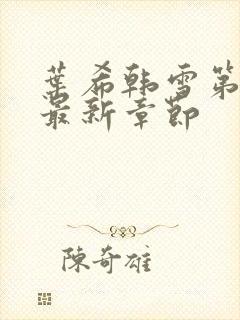 葉希韓雪第
最新章節
陳奇雄